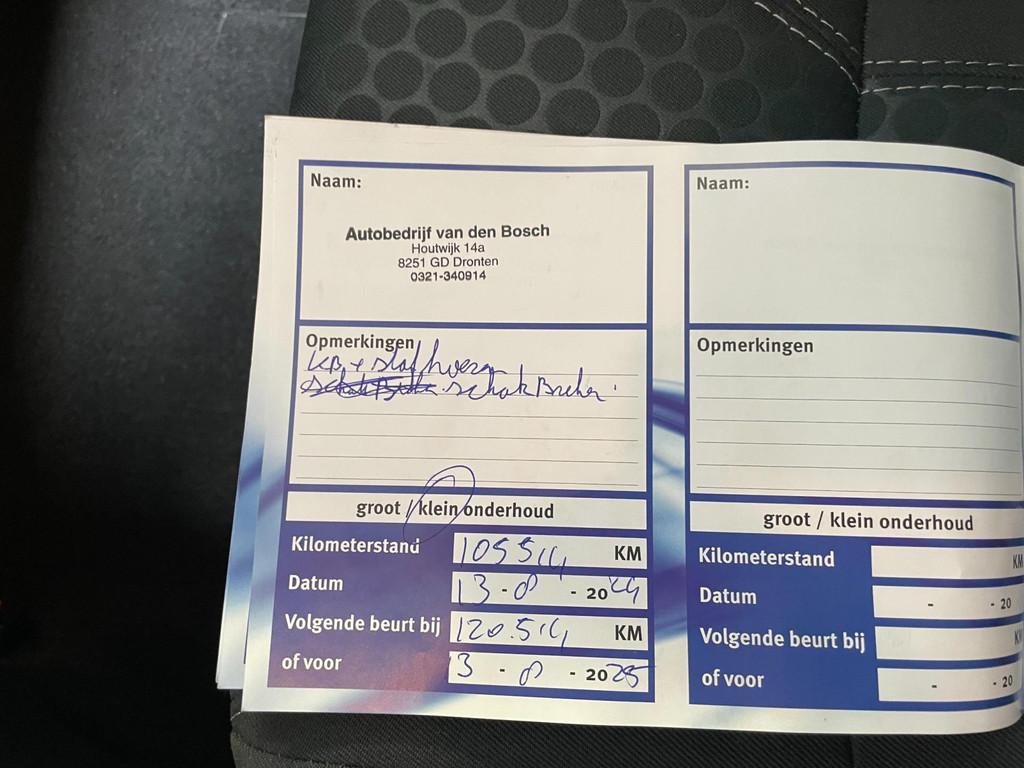 Naam:
Autobedrijf van den Bosch
Houtwijk 14a
8251 GD Dronten
0321-340914
Opmerkingen
KB +
groot / klein onderhoud
Kilometerstand 105514 KM
Datum 13-8-2024
Volgende beurt bij 120.514 KM
of voor 13-8-2025
Naam:
Opmerkingen
groot / klein onderhoud
Kilometerstand KM
Datum - - 20
Volgende beurt bij
of voor - - 20